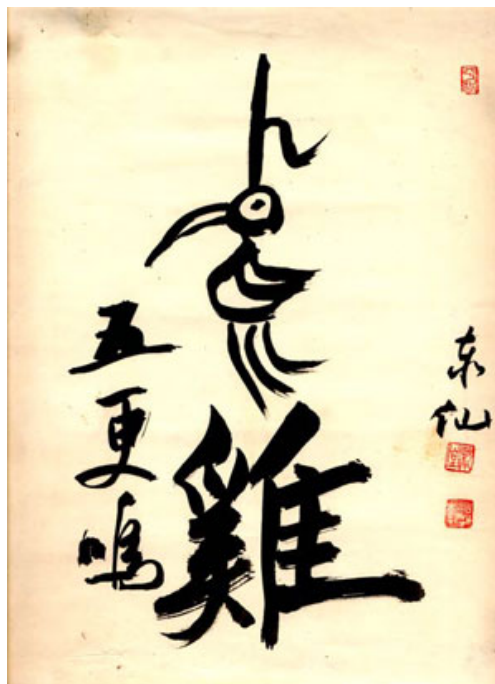 雞
五更鳴
东仙